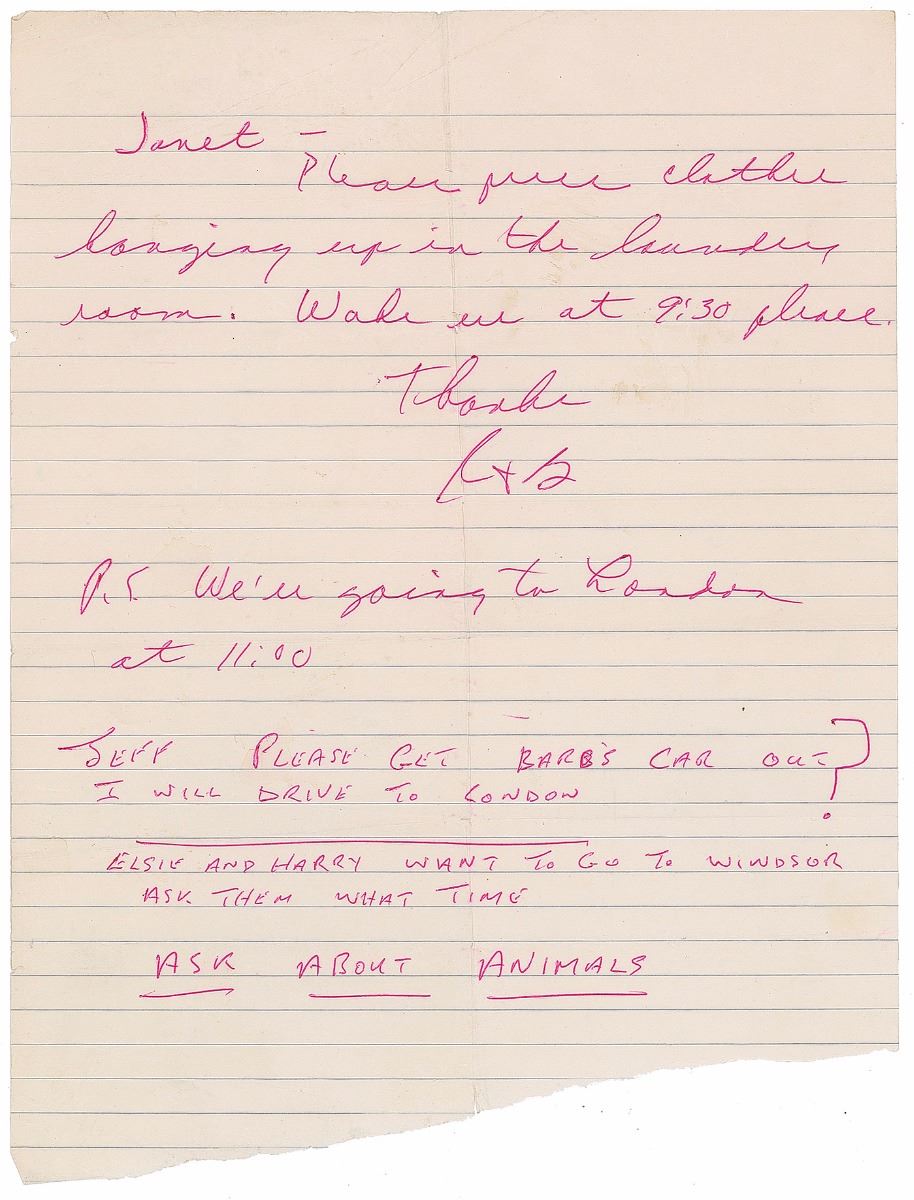 Janet –
Please press clothes
hanging up in the laundry
room. Wake us at 9:30 please.
Thanks
P.S. We're going to London
at 11:00
JEFF PLEASE GET BARB'S CAR OUT?
I WILL DRIVE TO LONDON
ELSIE AND HARRY WANT TO GO TO WINDSOR
ASK THEM WHAT TIME
ASK ABOUT ANIMALS